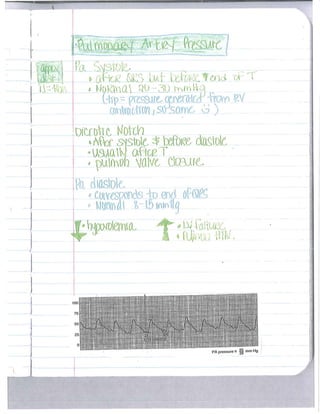 Pulmonary Artery Pressure
Pa Systole
• after QRS but before end of T
• Normal 20-30 mmHg
(tip = pressure generated from RV
contraction, so same ☺)
Dicrotic Notch
• After systole & before diastole
• usually after T
• pulmon valve closure
Pa diastole
• Corresponds to end of QRS
• Normal 8-15 mmHg
↓ hypovolemia ↑ • LV failure
• Pulmon HTN.
100
75
50
25
0
PA pressure = mm Hg